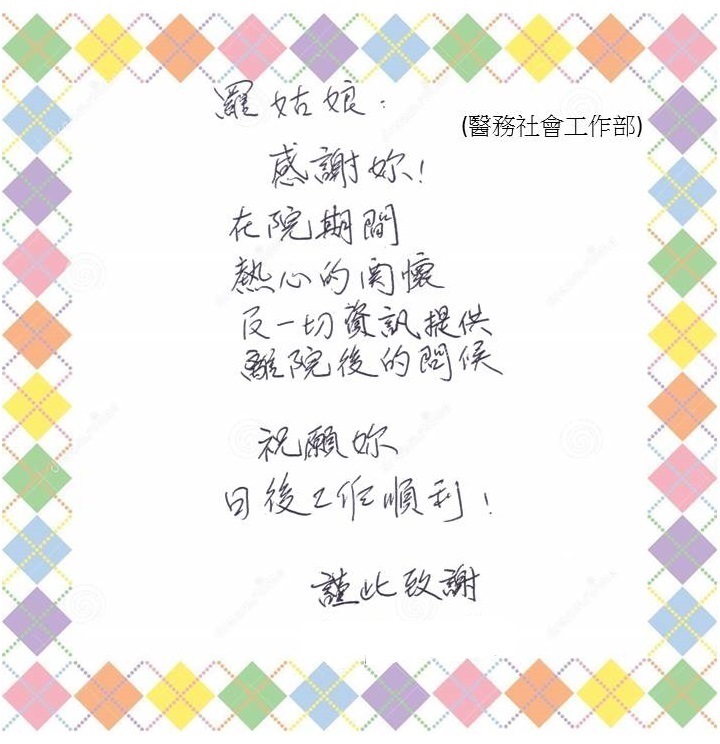 羅姑娘：
(醫務社會工作部)
感謝妳！
在院期間
熱心的関懷
及一切資訊提供
離院後的問候
祝願妳
日後工作順利！
謹此致謝